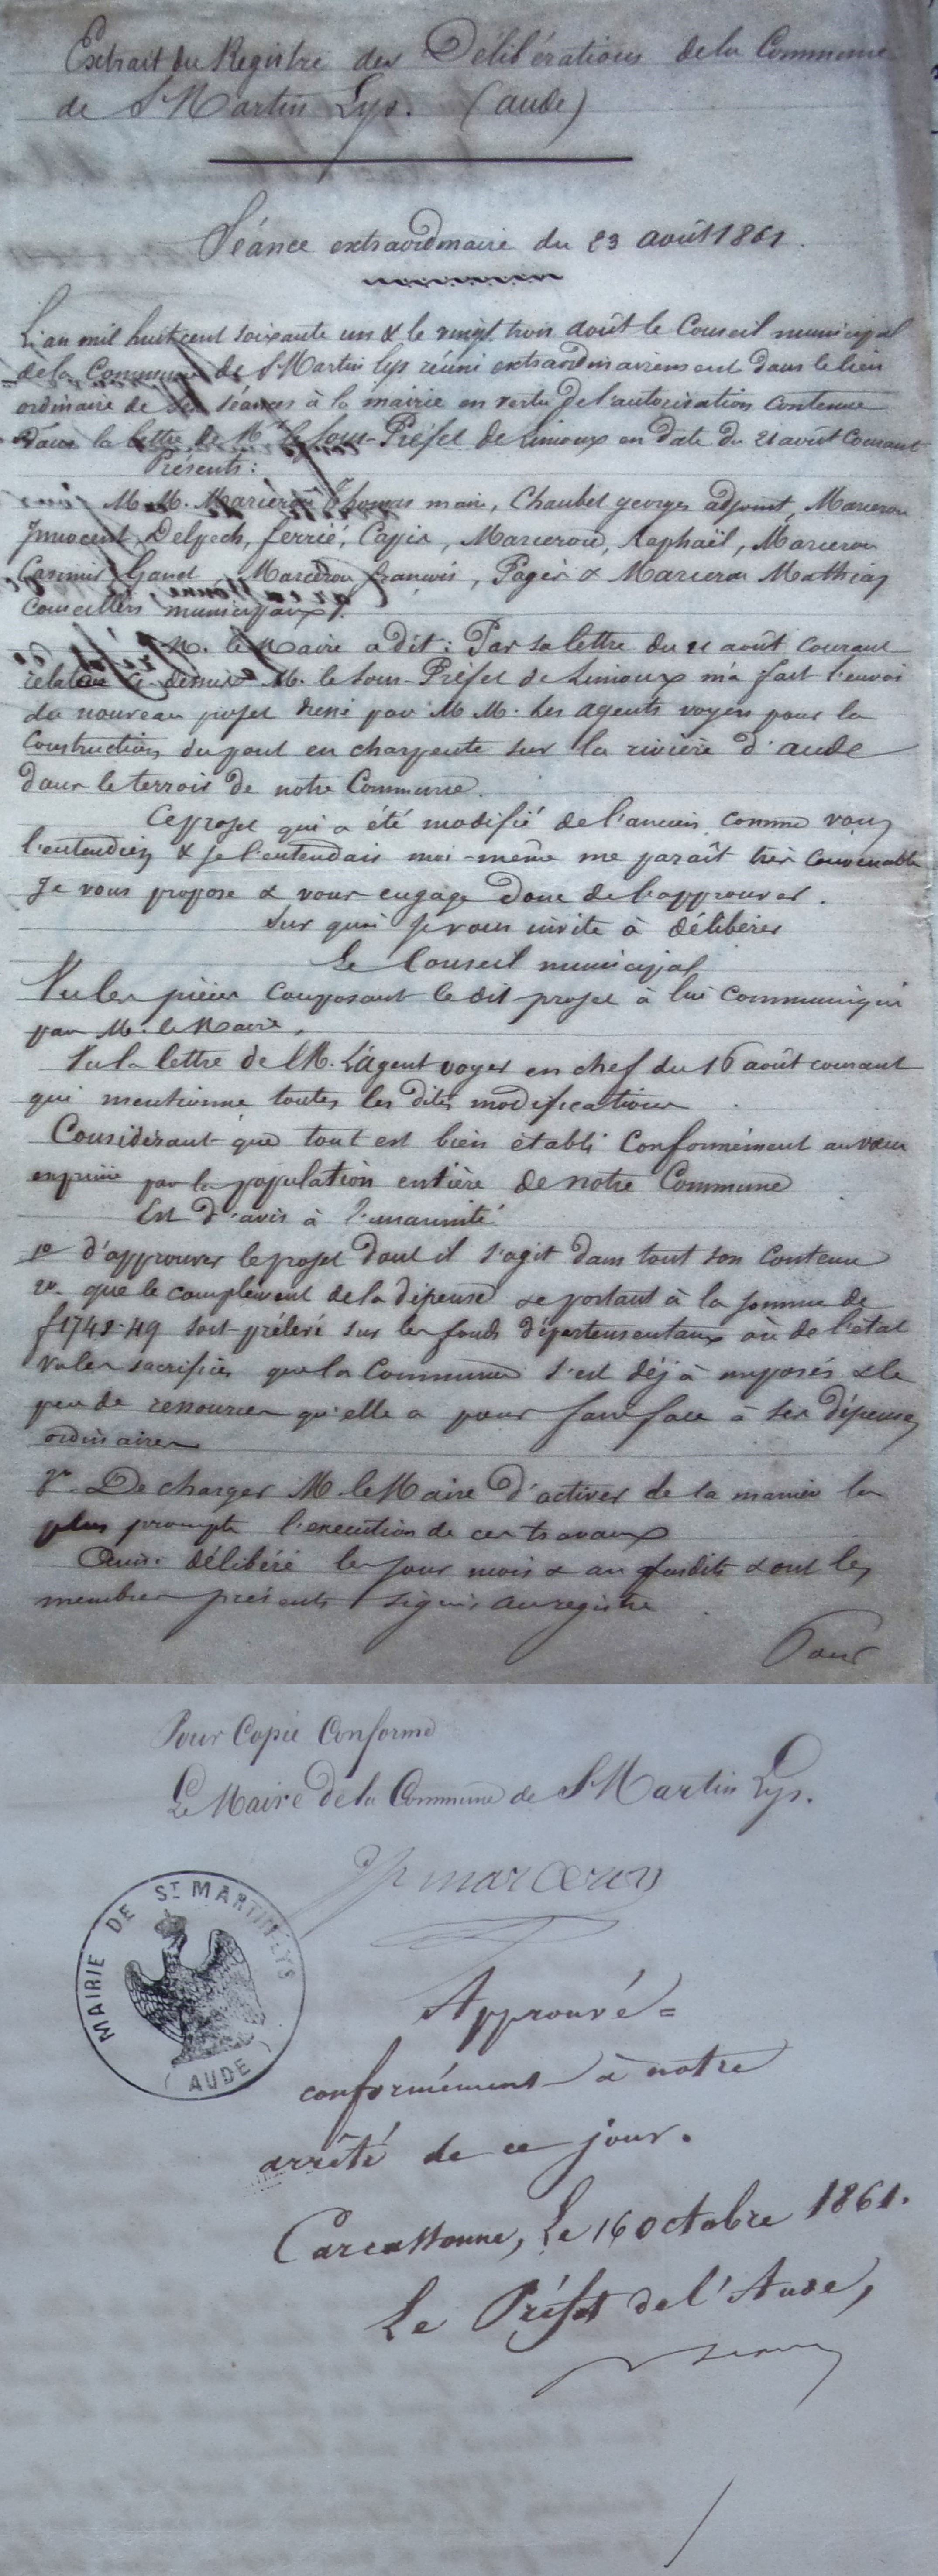 Extrait du Registre des Délibérations de la Commune
de St Martin Lys. (aude)
Séance extraordinaire du 23 août 1861.
L'an mil huit cent soixante un & le vingt trois août le Conseil municipal
de la Commune de St Martin lys réuni extraordinairement dans le lieu
ordinaire de ses séances à la mairie en vertu de l'autorisation contenue
dans la lettre de Mr le Sous-Préfet de Limoux en date du 21 août Courant
Présents :
M.M. Marcerou Thomas maire, Chaubet georges adjoint, Marcerou
Innocent, Delpech, ferrié, Marcerou, Raphaël, Marcerou
Casimir, Marcerou françois, Pagés & Marcerou Mathias
conseillers municipaux.
M. le Maire a dit : Par sa lettre du 21 août courant
relatée ci-dessus M. le Sous-Préfet de Limoux m'a fait l'envoi
du nouveau projet dressé par M M. les agents voyers pour la
Construction du pont en charpente sur la rivière d'aude
dans le terroir de notre Commune.
Ce projet qui a été modifié de l'ancien comme vous
l'entendiez & je l'entendais moi-même me paraît très Convenable
Je vous propose & vous engage donc de l'approuver.
Sur quoi Je vous invite à délibérer
Le Conseil municipal
Vu les pièces composant le dit projet à lui communiqué
par M. le Maire,
Vu la lettre de M. L'agent voyer en chef du 16 août courant
qui mentionne toutes les dites modifications
Considérant que tout est bien établi Conformément au vœu
exprimé par la population entière de notre Commune
Est d'avis à l'unanimité
1o d'approuver le projet dont il s'agit dans tout son Contenu
2o que le complément de la dépense se portant à la somme de
f1748-49 soit prélevé sur les fonds départementaux ou de l'état
vu les sacrifices que la Commune s'est déjà imposés & le
peu de ressources qu'elle a pour faire face à ses dépenses
ordinaires
3o De charger M. le Maire d'activer de la manière la
plus prompte l'exécution de ces travaux
Ainsi délibéré les jour mois & an susdits & ont les
membres présents signés au registre
Pour
Pour Copie Conforme
Le Maire de la Commune de St Martin Lys.
marcerou
MAIRIE DE ST MARTIN LYS
(AUDE)
Approuvé =
conformément à notre
arrêté de ce jour.
Carcassonne, Le 16 octobre 1861.
Le Préfet de l'Aude,